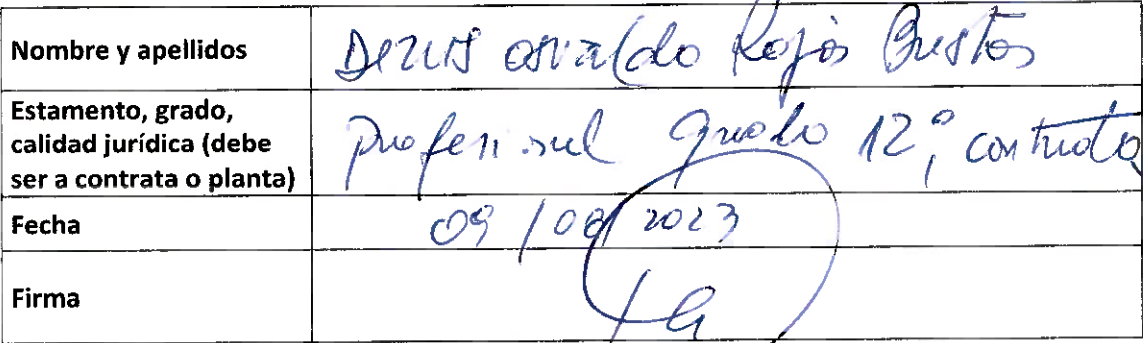 Nombre y apellidos
Denis Osvaldo Rojas Bustos
Estamento, grado,
calidad jurídica (debe
ser a contrata o planta)
Profesional grado 12°, contrata
Fecha
09/08/2023
Firma